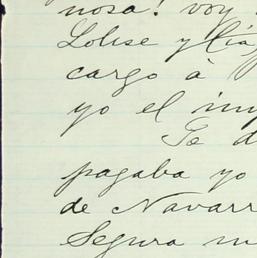 nosa! voy
Lolise y tia
cargo á
yo el im
Te d
pagaba yo
de Navarr
Segura m